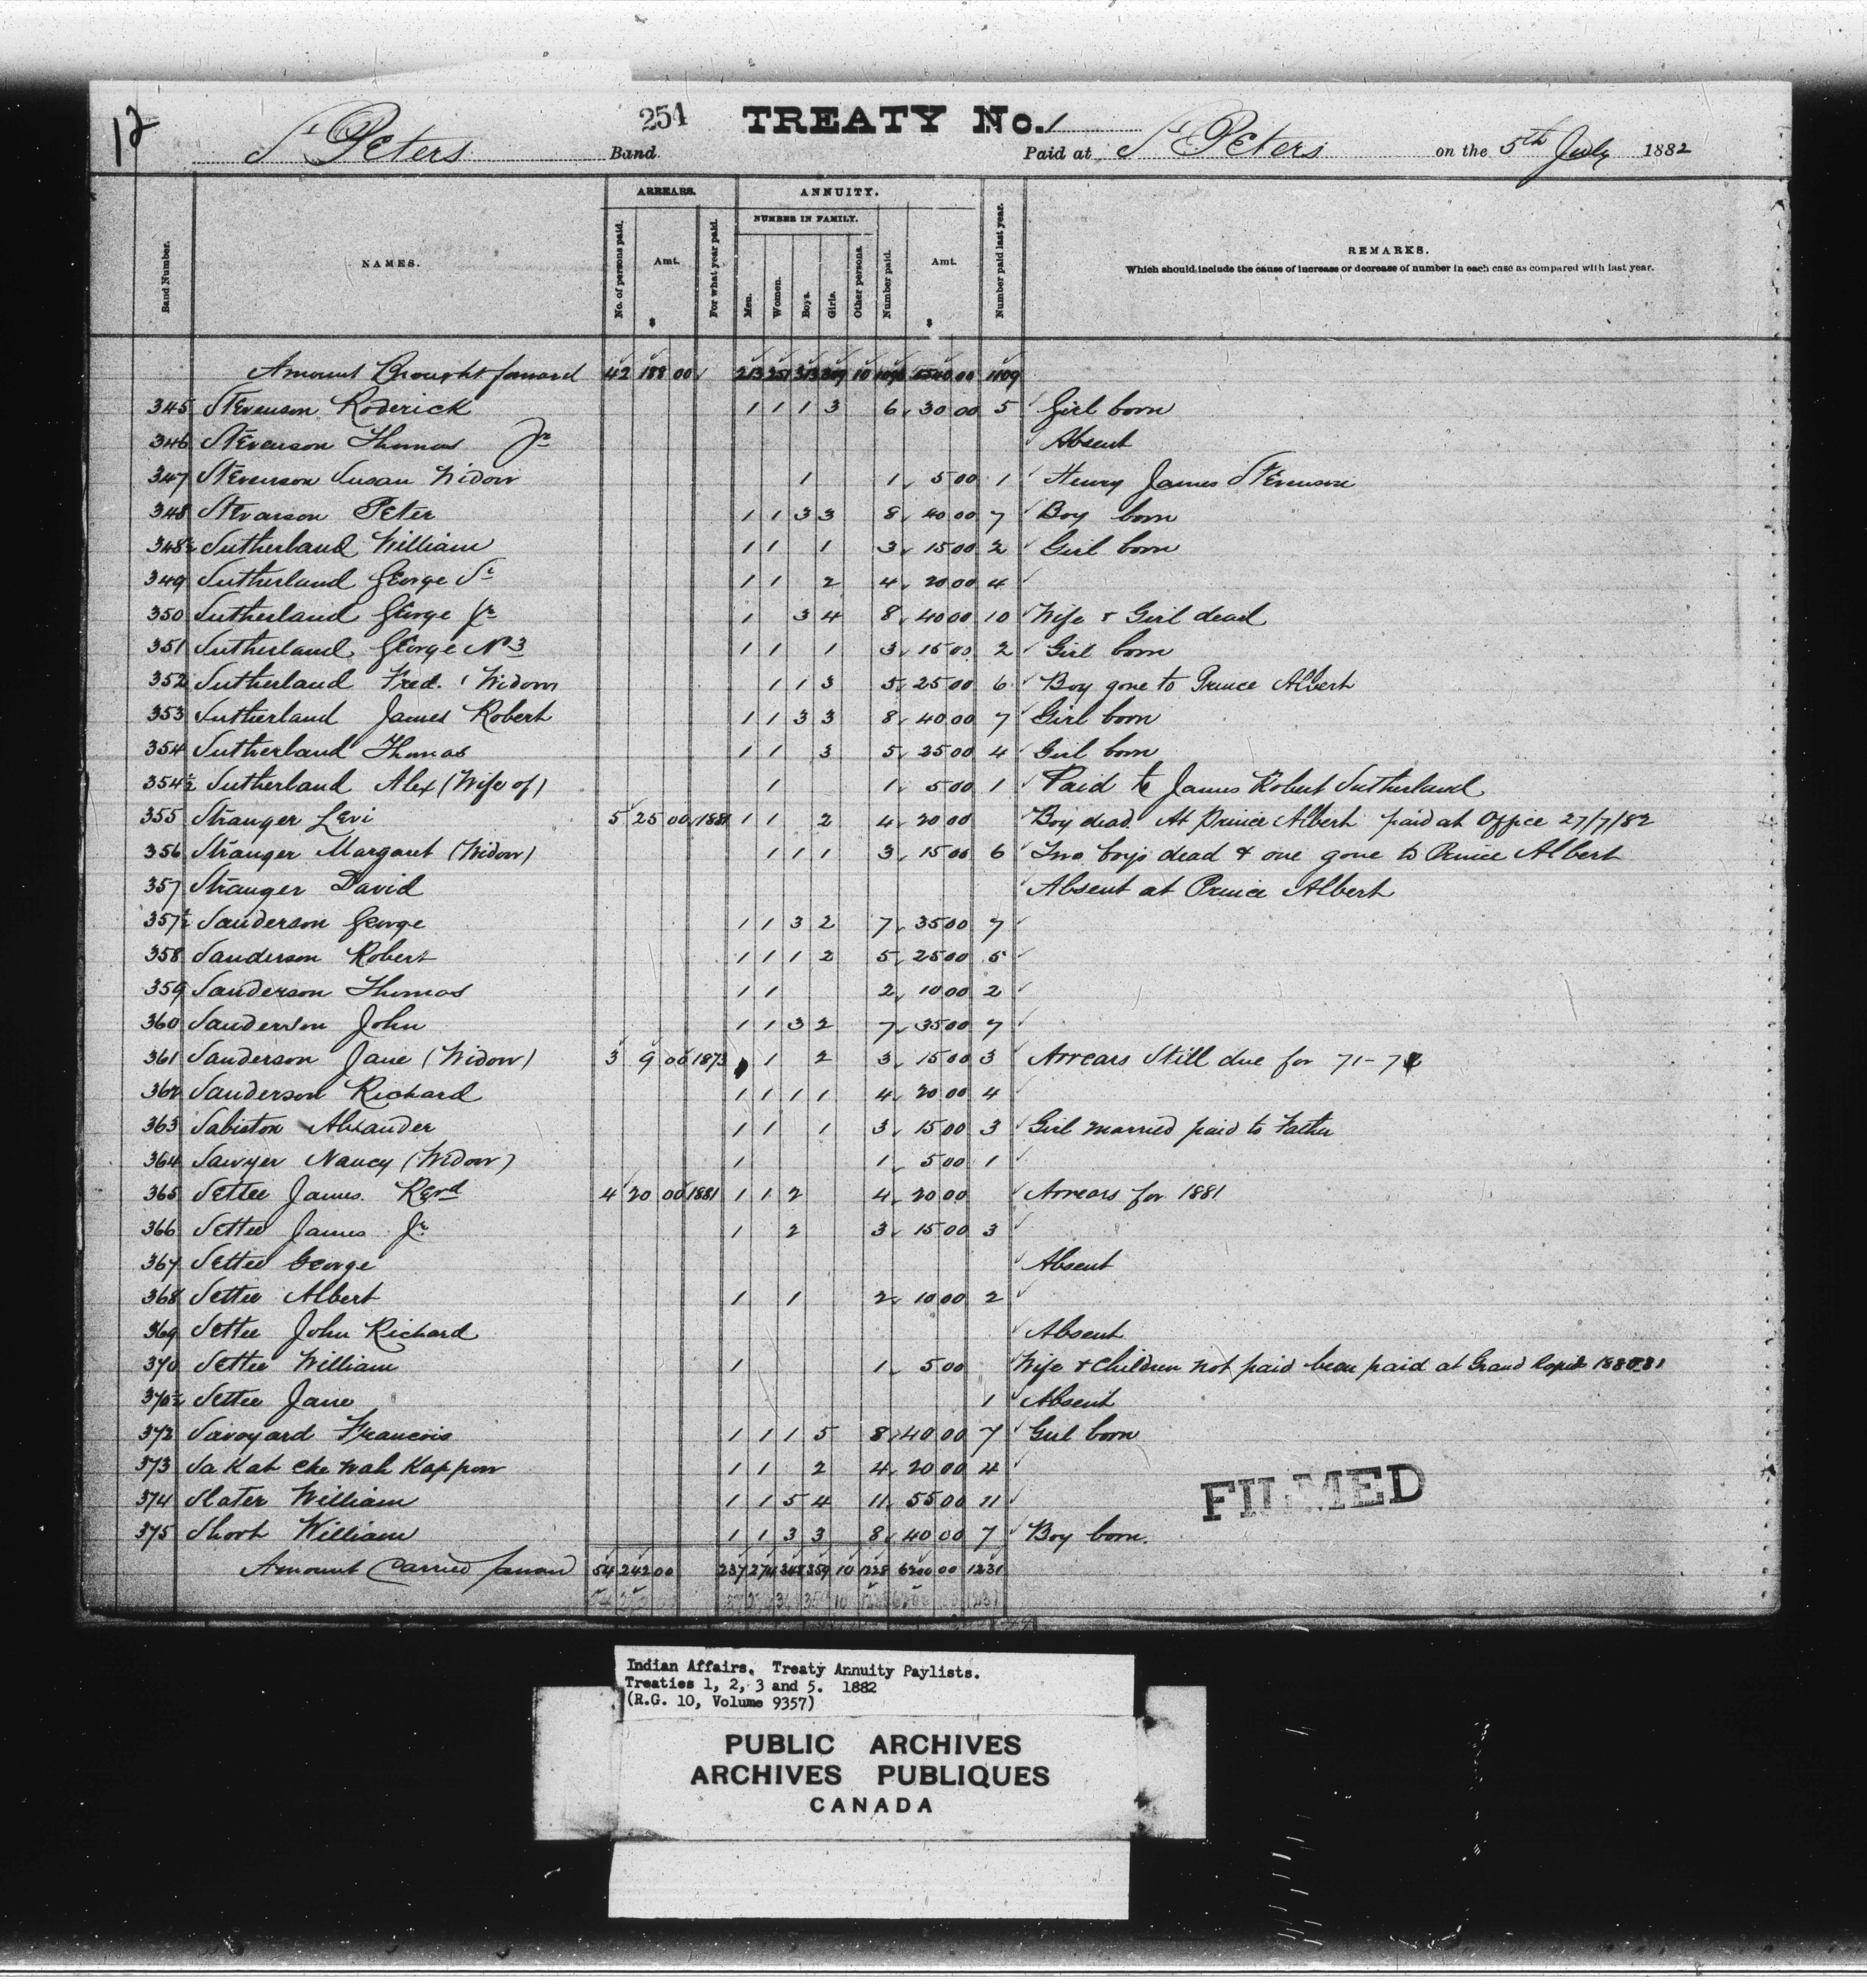 12
254
TREATY No. 1
St Peters Band Paid at St Peters on the 5th July 1882
ARREARS. ANNUITY.
NUMBER IN FAMILY.
Band Number. NAMES. No. of persons paid. Amt. $ For what year paid. Men. Women. Boys. Girls. Other persons. Number paid. Amt. $ Number paid last year. REMARKS.
Which should include the cause of increase or decrease of number in each case as compared with last year.
Amount Brought forward 42 188 00 213 251 313 10 00 1109
345 Stevenson Roderick 1 1 1 3 6 30 00 5 Girl born
346 Stevenson Thomas Jr Absent
347 Stevenson Susan Widow 1 1 5 00 1 Henry James Stevenson
348 Stevarson Peter 1 1 3 3 8 40 00 7 Boy born
348½ Sutherland William 1 1 1 3 15 00 2 Girl born
349 Sutherland George Sr 1 1 2 4 20 00 4
350 Sutherland George Jr 1 3 4 8 40 00 10 Wife & Girl dead
351 Sutherland George No 3 1 1 1 3 15 00 2 Girl born
352 Sutherland Fred. (Widow 1 1 3 5 25 00 6 Boy gone to Prince Albert
353 Sutherland James Robert 1 1 3 3 8 40 00 7 Girl born
354 Sutherland Thomas 1 1 3 5 25 00 4 Girl born
354½ Sutherland Alex (Wife of) 1 1 5 00 1 Paid to James Robert Sutherland
355 Stranger Levi 5 25 00 1881 1 1 2 4 20 00 Boy dead. At Prince Albert paid at Office 27/7/82
356 Stranger Margaret (Widow) 1 1 1 3 15 00 6 Two boys dead & one gone to Prince Albert
357 Stranger David Absent at Prince Albert
357½ Sanderson George 1 1 3 2 7 35 00 7
358 Sanderson Robert 1 1 1 2 5 25 00 5
359 Sanderson Thomas 1 1 2 10 00 2
360 Sanderson John 1 1 3 2 7 35 00 7
361 Sanderson Jane (Widow) 3 9 00 1873 1 2 3 15 00 3 Arrears Still due for 71-72
362 Sanderson Richard 1 1 1 1 4 20 00 4
363 Sabiston Alexander 1 1 1 3 15 00 3 Girl married paid to Father
364 Sawyer Nancy (Widow) 1 1 5 00 1
365 Settee James Revd 4 20 00 1881 1 1 2 4 20 00 Arrears for 1881
366 Settee James Jr 1 2 3 15 00 3
367 Settee George Absent
368 Settee Albert 1 1 2 10 00 2
369 Settee John Richard Absent
370 Settee William 1 1 5 00 Wife & Children not paid been paid at Grand Rapids
370½ Settee Jane 1 Absent
372 Savoyard Francois 1 1 1 5 8 40 00 7 Girl born
373 Sa Kat che wah Kappow 1 1 2 4 20 00 4
374 Slater William 1 1 5 4 11 55 00 11
375 Short William 1 1 3 3 8 40 00 7 Boy born.
Amount Carried forward 54 242 00 237 274 348 359 10 1228 6200 00 1231
FILMED
Indian Affairs. Treaty Annuity Paylists.
Treaties 1, 2, 3 and 5. 1882
(R.G. 10, Volume 9357)
PUBLIC ARCHIVES
ARCHIVES PUBLIQUES
CANADA